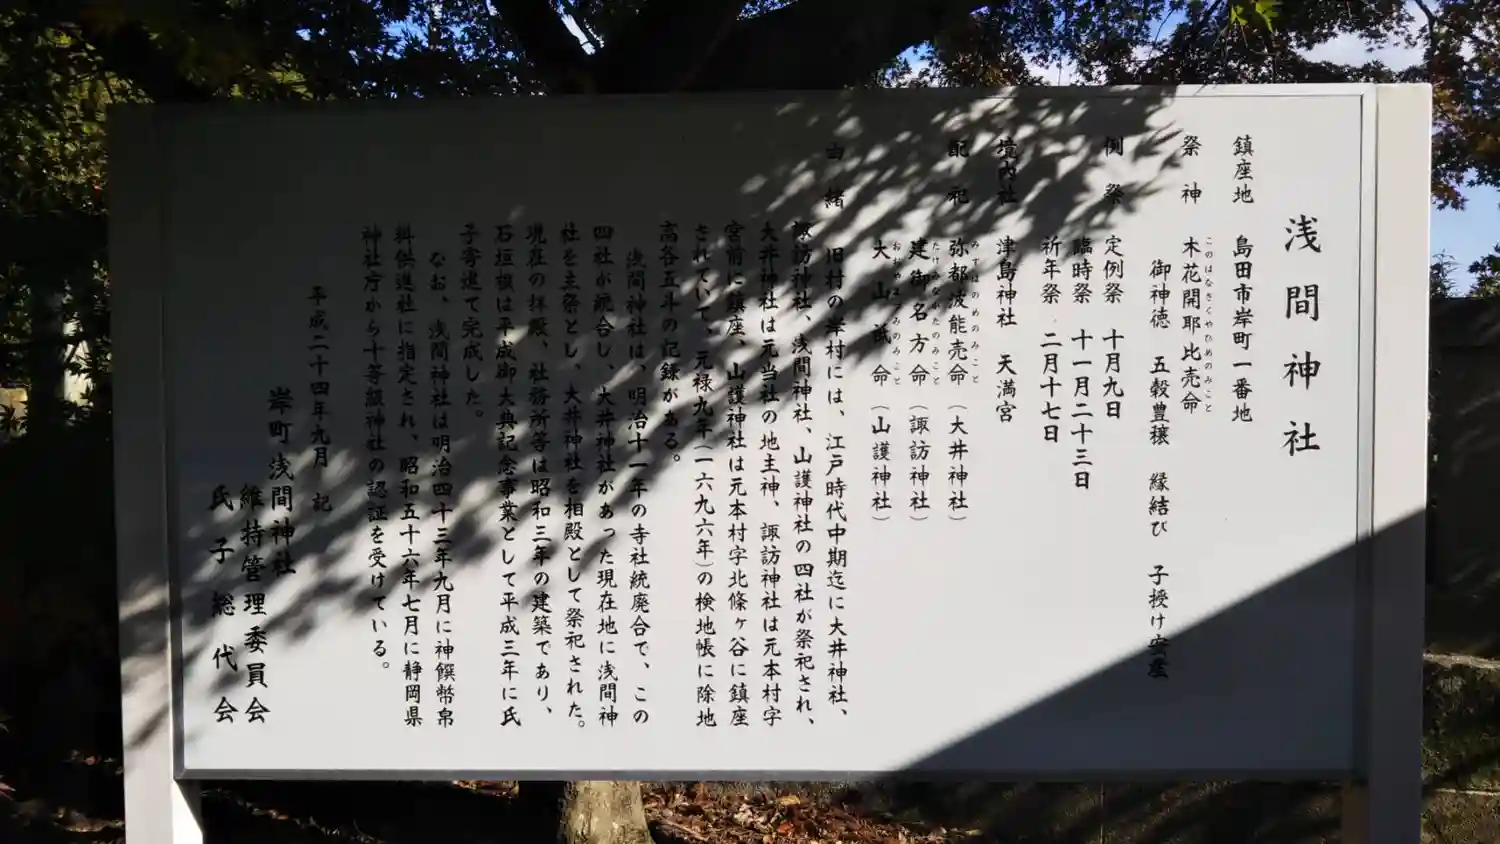 浅間神社
鎮座地　島田市岸町一番地
祭神　木花開耶比売命
このはなさくやひめのみこと
御神徳　五穀豊穣　縁結び　子授け安産
例祭　定例祭　十月九日
臨時祭　十一月二十三日
祈年祭　二月十七日
境内社　津島神社　天満宮
配祀　弥都波能売命（大井神社）
みずはのめのみこと
建御名方命（諏訪神社）
たけみなかたのみこと
大山祇命（山護神社）
おおやまつみのみこと
由緒　旧村の岸村には、江戸時代中期迄に大井神社、
諏訪神社、浅間神社、山護神社の四社が祭祀され、
大井神社は元当社の地主神、諏訪神社は元本村字
宮前に鎮座、山護神社は元本村字北條ヶ谷に鎮座
されていて、元禄九年（一六九六年）の検地帳に除地
高各五斗の記録がある。
浅間神社は、明治十一年の寺社統廃合で、この
四社が統合し、大井神社があった現在地に浅間神
社を主祭とし、大井神社を相殿として祭祀された。
現在の拝殿、社務所等は昭和三年の建築であり、
石垣根は平成御大典記念事業として平成三年に氏
子寄進て完成した。
なお、浅間神社は明治四十三年九月に神饌幣帛
料供進社に指定され、昭和五十六年七月に静岡県
神社庁から十等級神社の認証を受けている。
平成二十四年九月　記
岸町浅間神社
維持管理委員会
氏子総代会